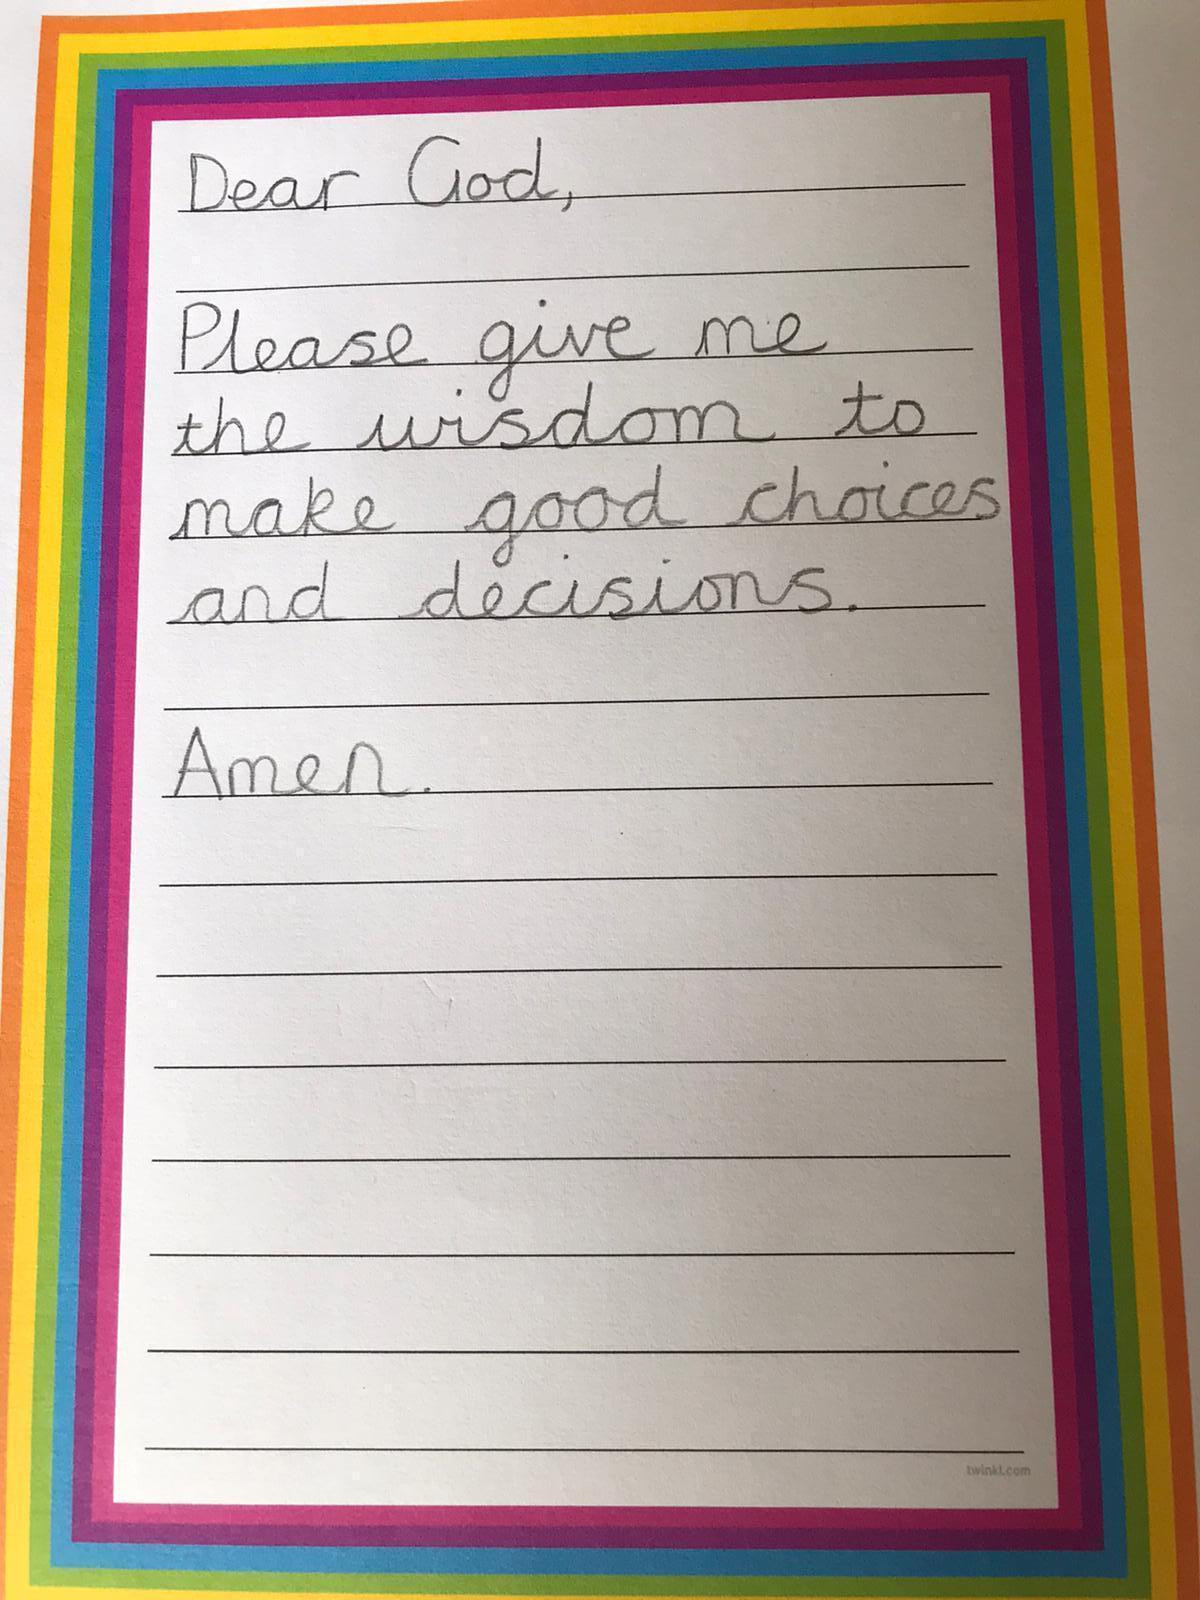 Dear God,
Please give me
the wisdom to
make good choices
and decisions.
Amen.
twinkl.com